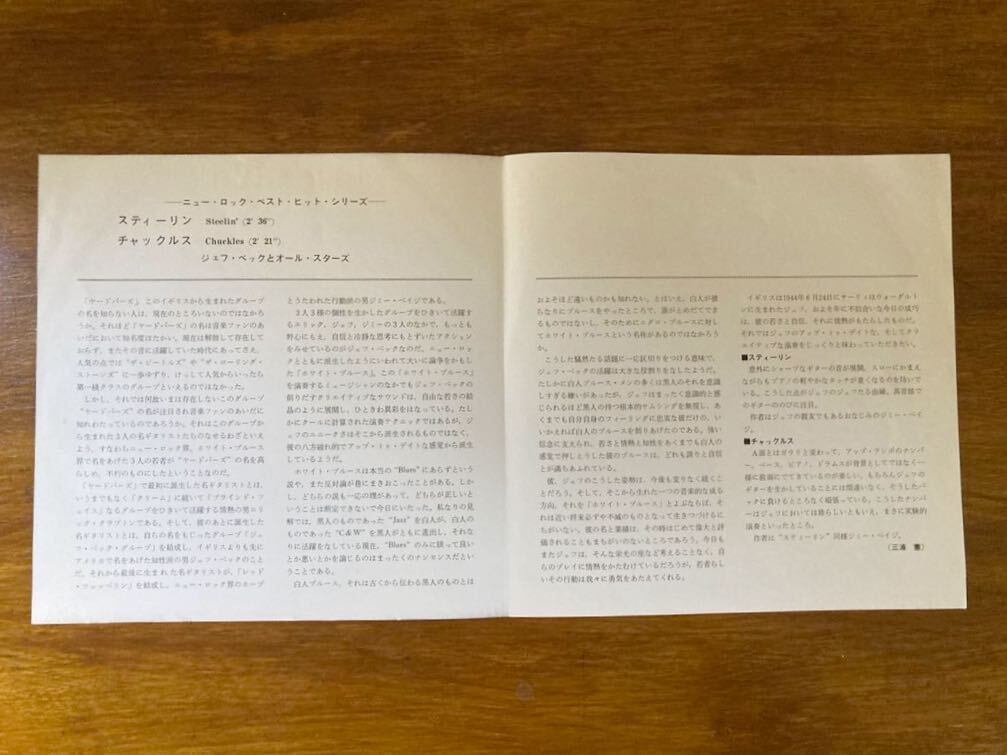 ――ニュー・ロック・ベスト・ヒット・シリーズ――
スティーリン Steelin' (2' 36")
チャックルス Chuckles (2' 21")
ジェフ・ベックとオール・スターズ
「ヤードバーズ」このイギリスから生まれたグループ
の名を知らない人は、現在のところいないのではなかろ
うか。それほど「ヤードバーズ」の名は音楽ファンのあ
いだにおいて知名度はたかい。現在は解散して存在して
おらず、またその昔に活躍していた時代にあってさえ、
人気の点では“ザ・ビートルズ”や“ザ・ローリング・
ストーンズ”に一歩ゆずり、けっして人気からいったら
第一線クラスのグループといえるのではなかった。
しかし、それでは何故いまは存在しないこのグループ
“ヤードバーズ”の名が注目され音楽ファンのあいだに
知れわたっているのであろうか。それはこのグループか
ら生まれた3人の名ギタリストたちのなせるわざといえ
よう。すなわちニュー・ロック界、ホワイト・ブルース
界で名をあげた3人の若者が“ヤードバーズ”の名を高
らしめ、不朽のものにしたということなのだ。
「ヤードバーズ」で最初に誕生した名ギタリストとは、
いうまでもなく「クリーム」に続いて「ブラインド・フ
ェイス」なるグループをひきいて活躍する情熱の男エリ
ック・クラプトンである。そして、彼のあとに誕生した
名ギタリストとは、自らの名をもじったグループ「ジェ
フ・ベック・グループ」を結成し、イギリスよりも先に
アメリカで名をあげた知性派の男ジェフ・ベックのこと
だ。それから最後に生まれた名ギタリストが、「レッド
・ツェッペリン」を結成し、ニュー・ロック界のホープ
とうたわれた行動派の男ジミー・ペイジである。
3人3様の個性を生かしたグループをひきいて活躍す
るエリック、ジェフ、ジミーの3人のなかで、もっとも
野心にもえ、自信と冷静な思考にもとずいたアクション
をみせているのがジェフ・ベックなのだ。ニュー・ロッ
クとともに派生したようにいわれて大いに論争をかもし
た「ホワイト・ブルース」。この「ホワイト・ブルース」
を演奏するミュージシャンのなかでもジェフ・ベックの
創りだすクリエイティブなサウンドは、自由な若さの結
晶のように展開し、ひときわ異彩をはなっている。たし
かにクールに計算された演奏テクニックではあるが、ジ
ェフのユニークさはそこから派生されるものではなく、
彼の八方破れ的でアップ・トゥ・デイトな感覚から派生
しているようだ。
ホワイト・ブルースは本当の“Blues”にあらずという
説や、また反対論が巷にまきおこったことがある。しか
し、どちらの説も一応の理があって、どちらが正しいとい
うことは断定できないで今日にいたった。私なりの見
解では、黒人のものであった“Jazz”を白人が、白人の
ものであった“C&W”を黒人がともに進出し、それな
りに活躍をしている現在、“Blues”のみに限って良い
とか悪いとかを論じるのはまったくのナンセンスだとい
うことである。
白人ブルース、それは古くから伝わる黒人のものとは
およそほど遠いものかも知れない。とはいえ、白人が彼
ちなりにブルースをやったところで、誰がとめだてでき
るものではないし、そのためにニグロ・ブルースに対し
てホワイト・ブルースという名称があるのではなかろう
か。
こうした騒然たる話題に一応区切りをつける意味で、
ジェフ・ベックの活躍は大きな役割りをなしたようだ。
たしかに白人ブルース・メンの多くは黒人のそれを意識
しすぎる嫌いがあったが、ジェフはまったく意識的と感
じられるほど黒人の持つ根本的サムシングを無視し、あ
くまでも自分自身のフィーリングに忠実な彼だけの、い
いかえれば白人のブルースを創りあげたのである。強い
信念に支えられ、若さと情熱と知性をあくまでも白人の
感覚で押しとうした彼のブルースは、どれも誇りと自信
とが満ちあふれている。
彼、ジェフのこうした姿勢は、今後も変りなく続くこ
とだろう。そして、そこから生れた一つの音楽的な成る
方向、それを「ホワイト・ブルース」とよぶならば、そ
れは近い将来必ずや不滅のものとなって生きつづけるに
ちがいない。彼の名と業績は、その時はじめて偉大と評
価されることもまちがいのないところであろう。今日も
またジェフは、そんな栄光の座など考えることなく、自
らのプレイに情熱をかたむけているだろうが、若者らし
いその行動は我々に勇気をあたえてくれる。
イギリスは1944年6月24日にサーリィはウォーグルト
ンに生まれたジェフ。およそ年に不似合いな今日の成功
は、彼の若さと自信、それに情熱がもたらしたものだ。
それではジェフのアップ・トゥ・デイトな、そしてクリ
エイティブな演奏をじっくりと味わっていただきたい。
■スティーリン
意外にシャープなギターの音が展開、スローにかまえ
ながらもピアノの軽やかなタッチが重くなるのを防いで
いる。こうした点がジェフのジェフたる由縁、高音部で
のギターののびに注目。
作者はジェフの親友でもあるおなじみのジミー・ペイ
ジ。
■チャックルス
A面とはガラリと変わって、アップ・テンポのナンバ
ー。ベース、ピアノ、ドラムスが背景としてではなく一
様に前面にでてきているのが楽しい。もちろんジェフの
ギターを生かしていることには間違いなく、そうしたバ
ックに負けるところなく頑張っている。こうしたナンバ
ーはジェフにおいては珍らしいともいえ、まさに実験的
演奏といったところ。
作者は“スティーリン”同様ジミー・ペイジ。
(三浦 憲)